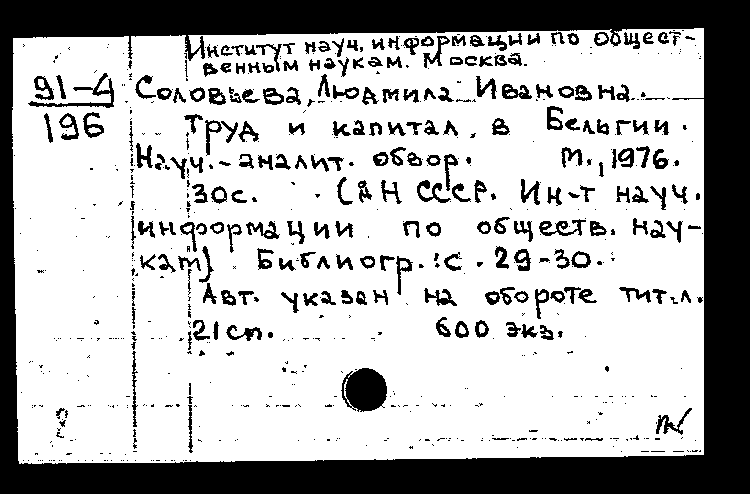 Институт науч. информации по общест-
венным наукам. Москва.
91-4
196
Соловьева, Людмила Ивановна.
Труд и капитал в Бельгии.
Науч.-аналит. обзор. М., 1976.
30с. (АН СССР. Ин-т науч.
информации по обществ. нау-
кам) Библиогр.: с. 29-30.
Авт. указан на обороте тит. л.
21сп. 600 экз.